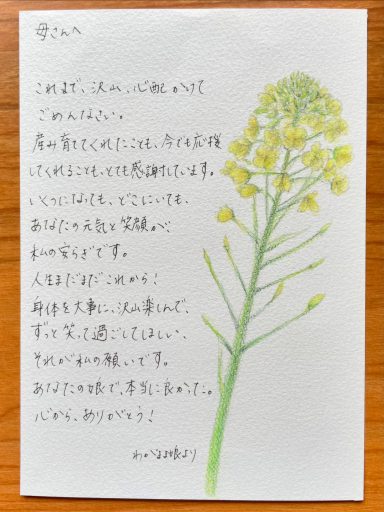 母さんへ
これまで、沢山、心配かけて
ごめんなさい。
産み育ててくれたことも、今でも応援
してくれることも、とても感謝しています。
いくつになっても、どこにいても、
あなたの元気と笑顔が、
私の安らぎです。
人生まだまだこれから!
身体を大事に、沢山楽しんで、
ずっと笑って過ごしてほしい、
それが私の願いです。
あなたの娘で、本当に良かった。
心から、ありがとう!
わがまま娘より